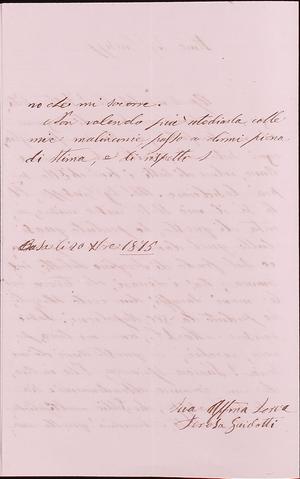 no che mi sovvene.
Non volendo più tediarla colle
mie malinconie, passo a dirmi piena
di stima, e di rispetto
Casa li 20 Xbre 1875
Sua Affma Serva
Teresa Guidotti